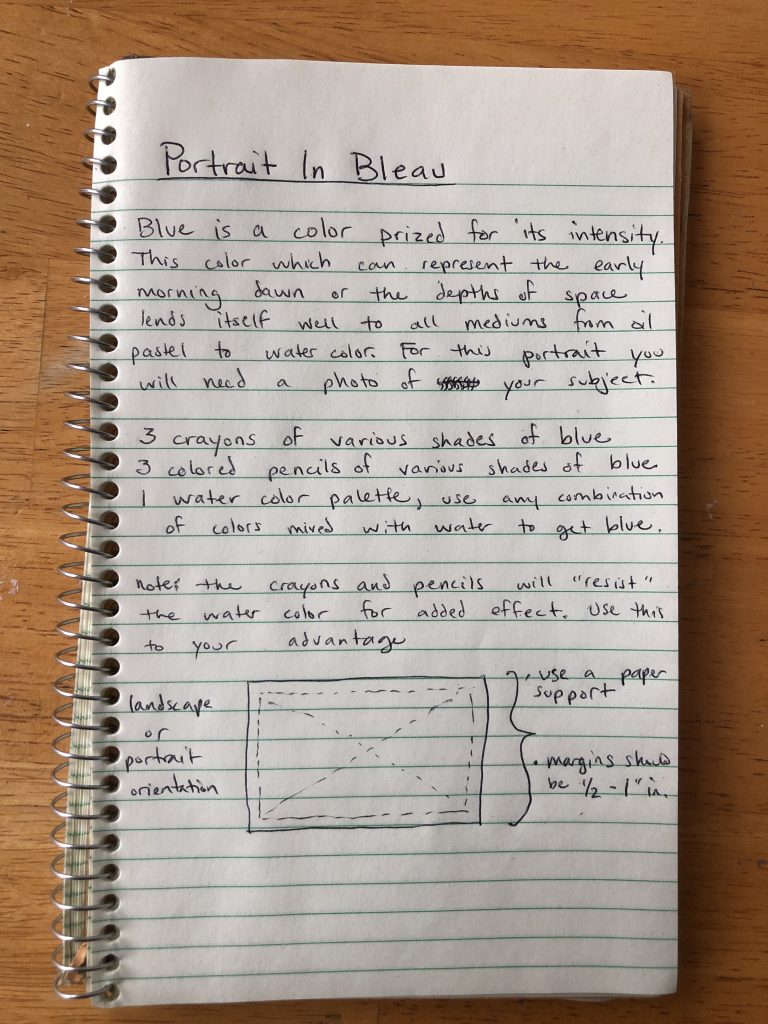 Portrait In Bleau
Blue is a color prized for its intensity.
This color which can represent the early
morning dawn or the depths of space
lends itself well to all mediums from oil
pastel to water color. For this portrait you
will need a photo of your subject.
3 crayons of various shades of blue
3 colored pencils of various shades of blue
1 water color palette, use any combination
of colors mixed with water to get blue.
note: the crayons and pencils will "resist"
the water color for added effect. Use this
to your advantage
landscape
or
portrait
orientation
• use a paper
support
• margins should
be 1/2 - 1" in.